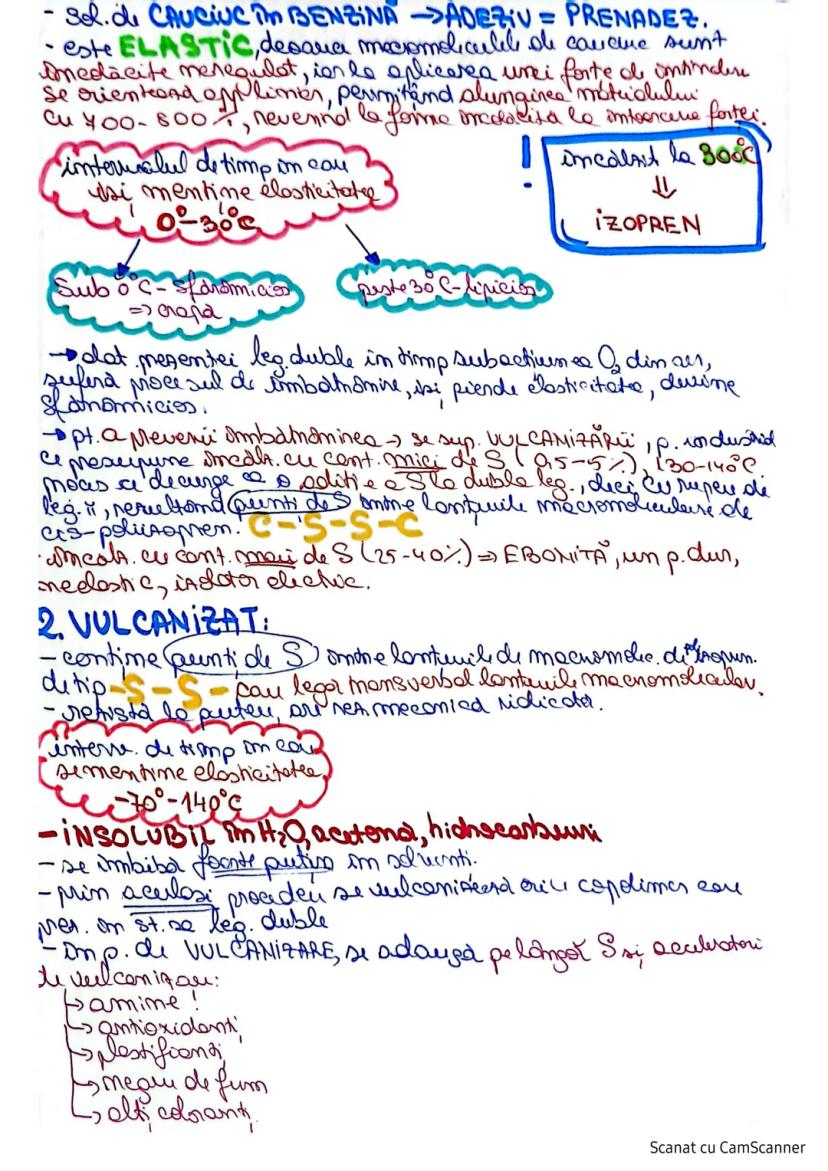 - sol. de CAUCIUC în BENZINĂ → ADEZIV = PRENADEZ.
- este ELASTIC, deoarece macromoleculele de cauciuc sunt
încolăcite neregulat, iar la aplicarea unei forțe de întindere
se orientează aprx liniar, permițând alungirea materialului
cu 700-800%, revenind la forma încolăcită la încetarea forței.
intervalul de timp în care
își menține elasticitatea
0°-30°C
! încălzit la 300°C
⇓
IZOPREN
Sub 0°C - sfărâmicios
=> crapă
peste 30°C - lipicios
→ dat. prezenței leg. duble în timp sub acțiunea O2 din aer,
suferă procesul de îmbătrânire, își pierde elasticitatea, devine
sfărâmicios.
→ pt. a preveni îmbătrânirea → se sup. VULCANIZĂRII, p. industrial
ce presupune încălz. cu cant. mici de S (0,5-5%), 130-140°C.
proces ce decurge ca o adiție a S la dubla leg., deci cu rupere de
leg. π, rezultând punți de S între lanțurile macromoleculare de
cis-poliizopren. C-S-S-C
· încălz. cu cant. mari de S (25-40%) => EBONITĂ, un p. dur,
neelastic, izolator electric.
2. VULCANIZAT:
- conține punți de S între lanțurile de macromolec. de poliizopren.
de tip -S-S- care leagă transversal lanțurile macromolecular.
- rezistă la rupere, are rez. mecanică ridicată.
interv. de timp în care
se menține elasticitatea
-70°-140°C
- INSOLUBIL în H2O, acetonă, hidrocarburi
- se îmbibă foarte puțin în solvenți.
- prin același procedeu se vulcanizează orice copolimer care
prez. în st. sa leg. duble
- În p. de VULCANIZARE, se adaugă pe lângă S și acceleratori
de vulcanizare:
↳ amine!
↳ antioxidanți
↳ plastifianți
↳ negru de fum
↳ alți coloranți.
Scanat cu CamScanner